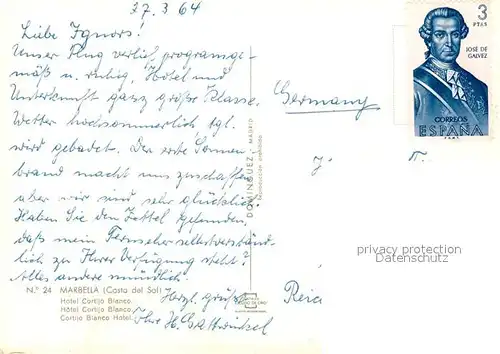 27.3.64
Liebe Ignors!
Unser Flug verlief programmge-
mäß u. ruhig, Hotel und
Unterkunft ganz große Klasse.
Wetter hochsommerlich, tgl.
wird gebadet. Der erste Sonnen-
brand macht uns zu schaffen
aber wir sind sehr glücklich.
Haben Sie den Zettel gefunden,
daß mein Fernseher selbstverständ-
lich zu Ihrer Verfügung steht?
Alles andere mündlich.
Herzl. Grüße
Ihre H.
N.º 24 MARBELLA (Costa del Sol)
Hotel Cortijo Blanco.
Hôtel Cortijo Blanco.
Cortijo Blanco Hotel.
DOMINGUEZ - MADRID
Reproducción prohibida
Germany
3
PTAS
JOSÉ DE
GALVEZ
CORREOS
ESPAÑA
privacy protection
Ansichtskarten-Center.de